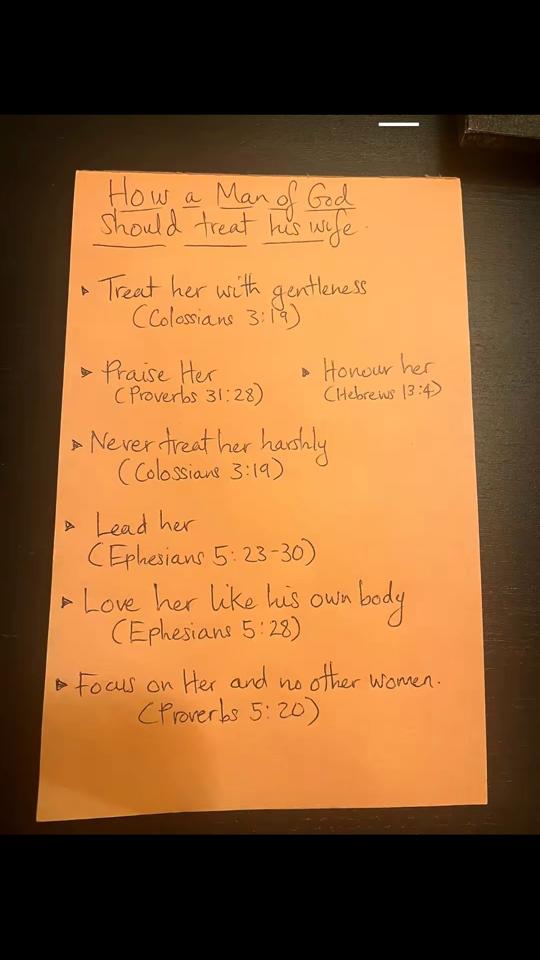 How a Man of God
should treat his wife.
▸ Treat her with gentleness
(Colossians 3:19)
▸ Praise Her
(Proverbs 31:28)
▸ Honour her
(Hebrews 13:4)
▸ Never treat her harshly
(Colossians 3:19)
▸ Lead her
(Ephesians 5:23-30)
▸ Love her like his own body
(Ephesians 5:28)
▸ Focus on Her and no other women.
(Proverbs 5:20)